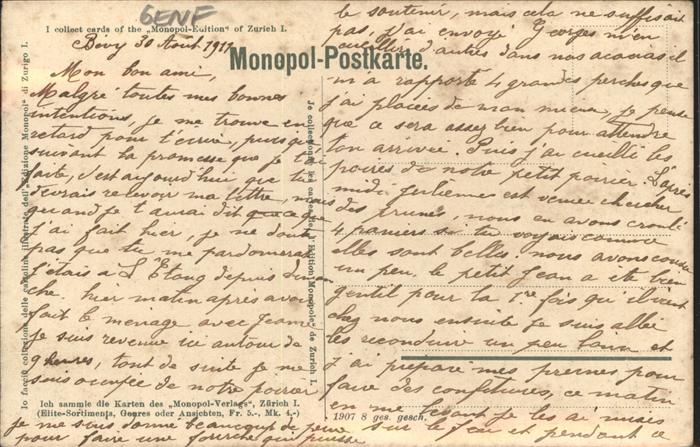 GENF
I collect cards of the „Monopol-Edition" of Zurich I.
Monopol-Postkarte.
Bevy 30 Août 1911
Mon bon ami,
Malgré toutes mes bonnes
intentions, je me trouve en
retard pour t'écrire, puisque
suivant la promesse que je t'ai
faite, c'est aujourd'hui que tu
devrais recevoir ma lettre, mais
quand je t'aurai dit que ce que
j'ai fait hier, je ne doute
pas que tu me pardonneras
j'étais à L'Etang depuis diman
che. hier matin après avoir
fait le ménage avec Jeanne
je suis revenue ici autour de
9 heures, tout de suite je me
suis occupée de notre poirier
je me suis donné beaucoup de peine
pour faire une fourche qui puisse
le soutenir, mais cela ne suffisait
pas, j'ai envoyé Georges m'en
cueillir d'autres dans nos acacias il
m'a rapporté 4 grandes perches que
j'ai placées de mon mieux, je pense
que ce sera assez bien pour attendre
ton arrivée. Puis j'ai cueilli les
poires de notre petit poirier. L'après
midi Julienne est venue chercher
des prunes nous en avons croulé
4 paniers si tu voyais comme
elles sont belles. nous avons cousu
un peu, le petit Jean a été bien
gentil pour la 1re fois qu'il vient
chez nous ensuite je suis allée
les reconduire un peu loin et
j'ai préparé mes prunes pour
faire des confitures, ce matin
en me levant je les ai mises
sur le feu et pendant ce
Je collectionne les cartes de l'„Edition Monopole" de Zurich I.
Io faccio collezione delle cartoline illustrate dell'„edizione Monopol" di Zurigo I.
Ich sammle die Karten des „Monopol-Verlags", Zürich I.
(Elite-Sortiments, Genres oder Ansichten, Fr. 5.-, Mk. 4.-)
1907 8 ges. gesch.